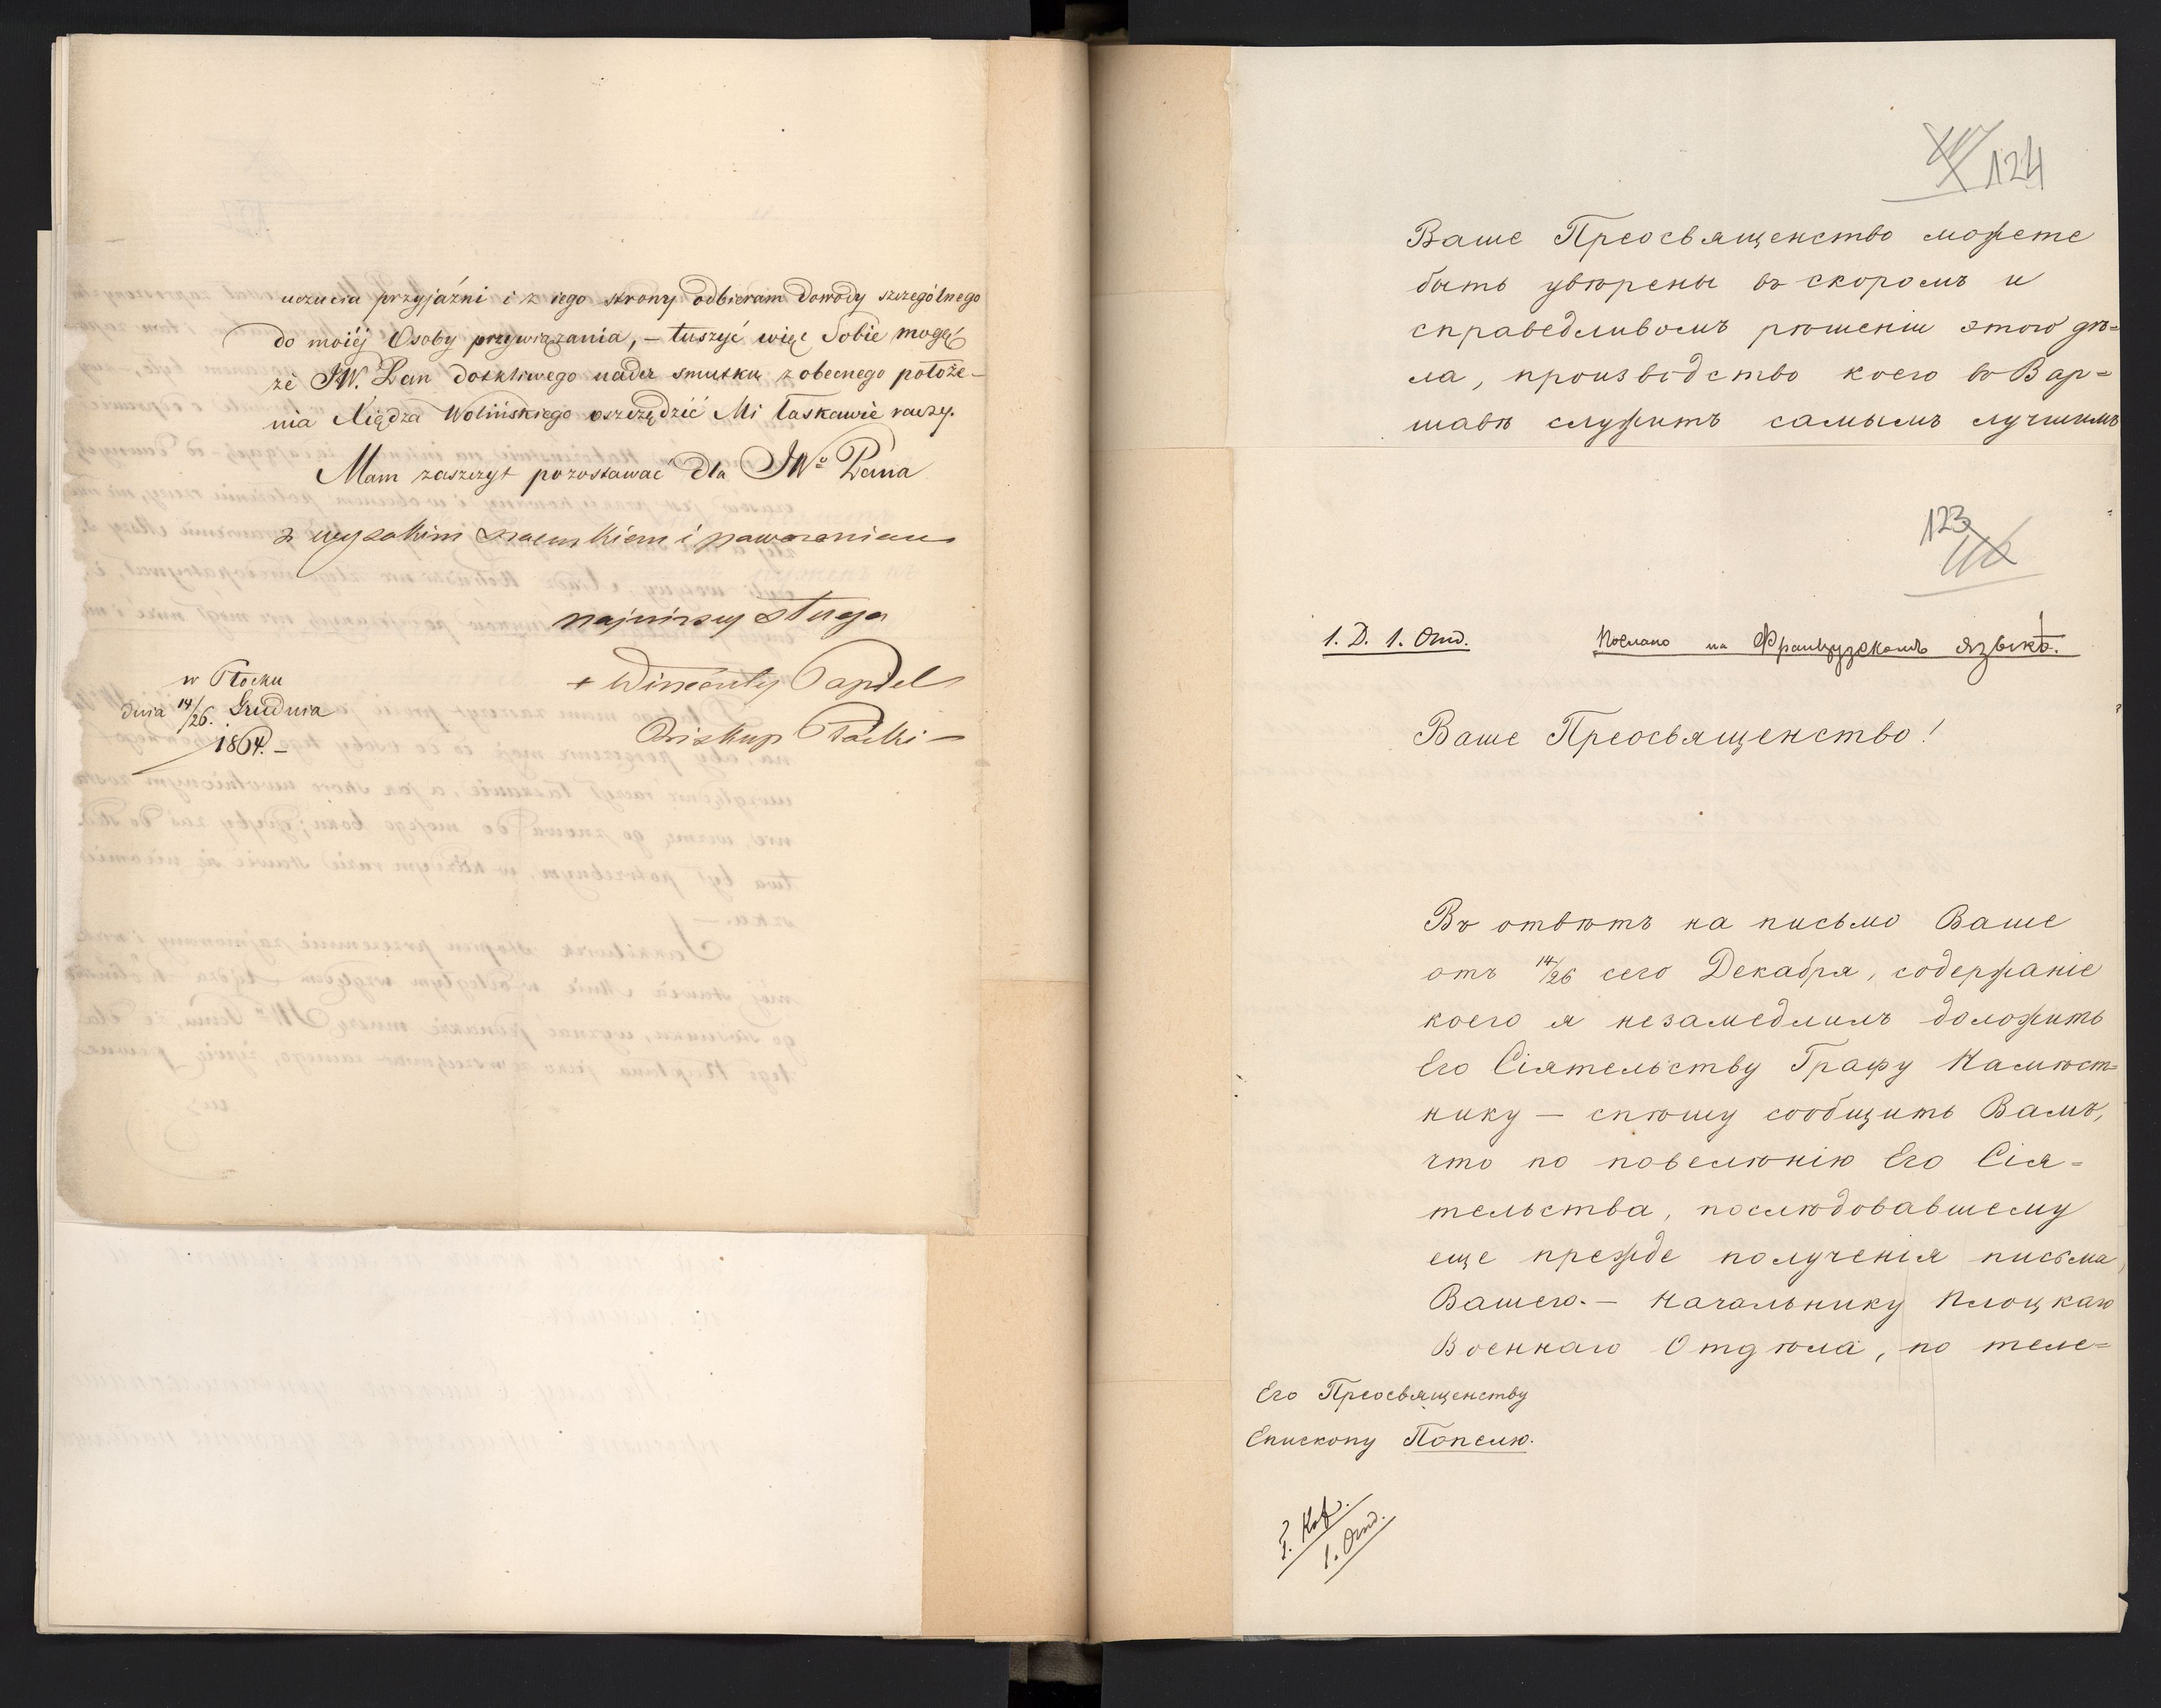 uczucia przyjaźni i z iego strony odbieram dowody szczególnego
do moiéj Osoby przywiązania, – tuszyć więc Sobie mogę,
że JW. Pan dotkliwego nader smutku z obecnego położe–
nia Xiędza Wolińskiego oszczędzić Mi łaskawie raczy.
Mam zaszczyt pozostawać dla JWo Pana
z wysokim szacunkiem i poważaniem
najniższy sługa
+ Wincenty Popiel
Biskup Płocki –
w Płocku
dnia 14/26. Grudnia
1864. –
124
Ваше Преосвященство можете
быть увѣрены въ скоромъ и
справедливомъ рѣшеніи этого дѣ=
ла, производство коего въ Вар=
шавѣ служитъ самымъ лучшимъ
123
1. Д. 1. Отд.
Послано на Французскомъ языкѣ.
Ваше Преосвященство!
Въ отвѣтъ на письмо Ваше
отъ 14/26 сего Декабря, содержаніе
коего я незамедлилъ доложить
Его Сіятельству Графу Намѣст=
нику – спѣшу сообщить Вамъ,
что по повелѣнію Его Сія=
тельства, послѣдовавшему
еще прежде полученія письма
Вашего. – Начальнику Плоцкаго
Военнаго Отдѣла, по теле=
Его Преосвященству
Епископу Попелю.
1. Отд.